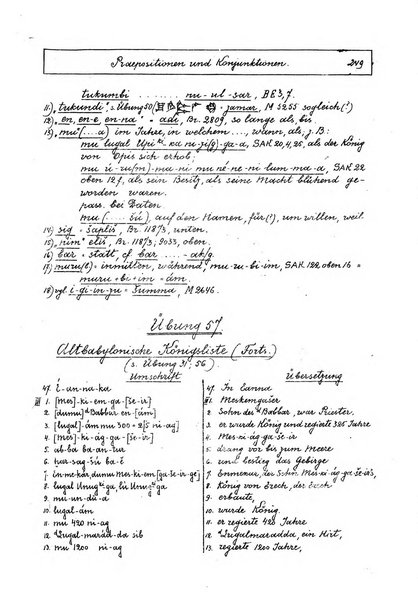 Praepositionen und Konjunktionen. 249
tukumbi ... nu-ul-sar, BE 3,7.
11.) "tukundi", s. Übung 50/ = jamar, M 5255 sogleich(!)
12.) "en, en-e, en-na" = adi, Br. 2809, so lange als, bis.
13.) mu (....a) im Jahre, in welchem ..., wann, als, z. B:
mu lugal Upi ki-ka nu-zi(g)-ga-a, SAK 20,4,25, als der König
von Opis sich erhob;
SAK 22
oben 12 f, als sein Besitz, als seine Macht blühend ge-
worden waren.
pass. bei Daten
mu (....šú), auf den Namen, für(!), um willen, weil.
14.) sig = šapliš, Br. 11873, unten.
15.) nim = eliš, Br. 11873, 9033, oben.
16.) bar = statt, cf bar .... -ak/g.
17.) muru(b) = inmitten, während, mu-ru-bi-im, SAK 122, oben 16 =
muru+bi+im = ám.
18.) vgl. i-gi-in-zu = šumma, M 2646.
Übung 57.
Altbabylonische Königsliste (Forts.)
(s. Übung 31; 56)
Umschrift Übersetzung
47. í-an-na-ka
III 1. [mes]-ki-em-ga-[še-ir]
2. [dumu] d Babbar en-[ám]
3. [lugal]-ám mu 300+25 ni-[ag]
4. [mes]-ki-ág-ga-[še-ir]
5. ab-ba ba-an-tur
6. ḫur-sag-šú ba-è
7. en-me-kár, dumu mes-ki-em-[ga-še-ir-ge]
8. lugal Unug ki-ga, lù Unug ki-ga
9. mu-un-dù-a
10. lugal-ám
11. mu 420 ni-ag
12. d Lugal-marád-da sib
13. mu 1200 ni-ag
47. In Eanna
III 1. Meskemgašer
2. Sohn des d Babbar, war Priester.
3. er wurde König und regierte 325 Jahre
4. Mes-ki-ág-ga-še-ir
5. drang vor bis zum Meere
6. und bestieg das Gebirge
7. Enmekar, der Sohn Mes-ki-ág-ga-še-ir's,
8. König von Erech, der Erech
9. erbaute,
10. wurde König
11. er regierte 420 Jahre
12. d Lugalmaradda, ein Hirt,
13. regierte 1200 Jahre,